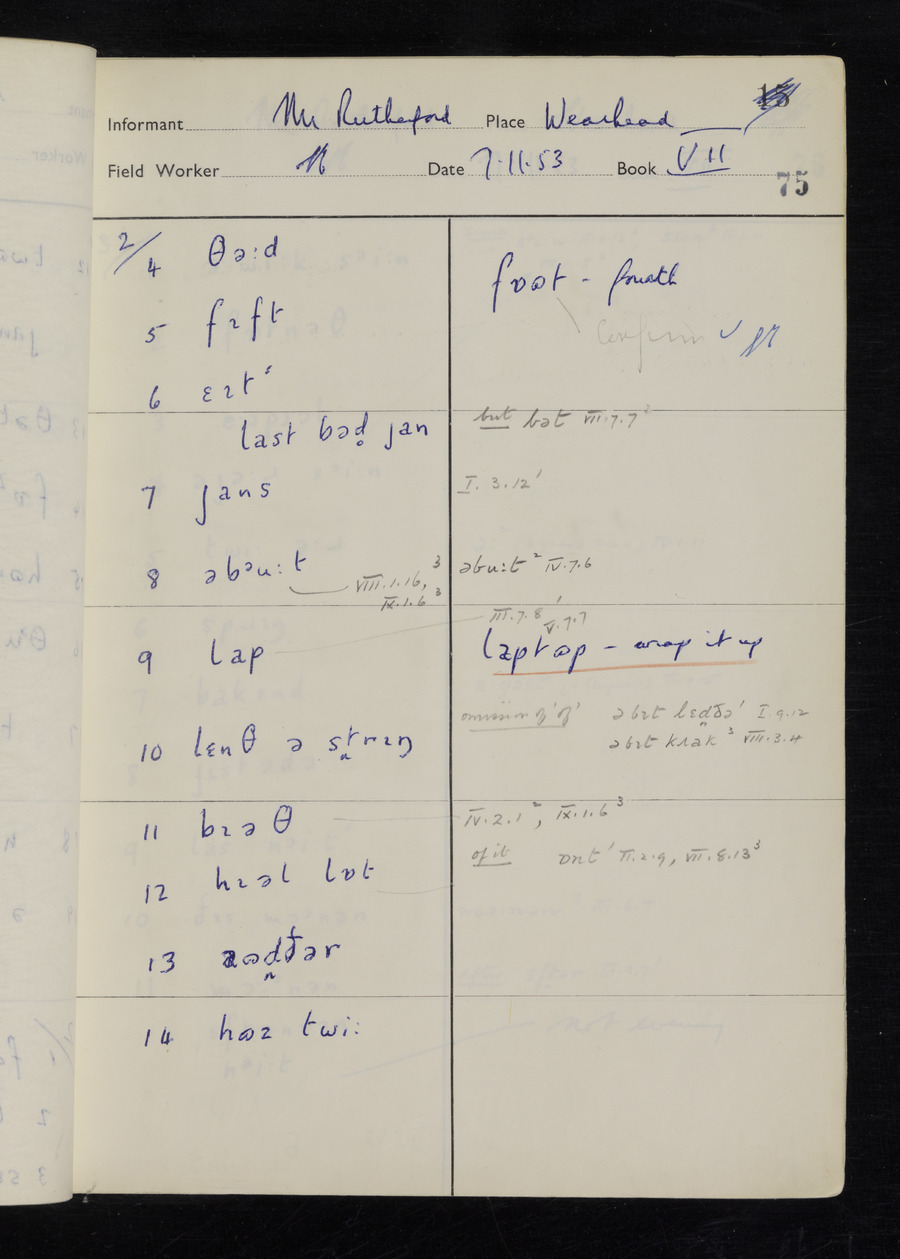 Informant Mr Rutherford Place Wearhead
Field Worker Date 7.11.53 Book VII
75
2/
4 θəːd
fɒət - fourth
5 fɪft
confirm ✓
6 ɛɪtˢ
last bəd̥ jan
but bət VII.7.7³
7 jans
I.3.12¹
8 əbəuːt VIII.1.16,³ IX.1.6³
əbuːt² IV.7.6
III.7.8¹ V.7.7
9 lap
lapt ɷp - wrap it up
omission of 'of' əbɪt lɛd̪ðə¹ I.9.12
əbɪt kɹak³ VIII.3.4
10 lɛnθ ə st̪rɪŋ
11 bɪəθ
IV.2.1², IX.1.6³
of it ɒnt¹ II.2.9, VII.8.13³
12 hɪəl lɒt
13 ɷd̪ðər
14 hɷz twiː